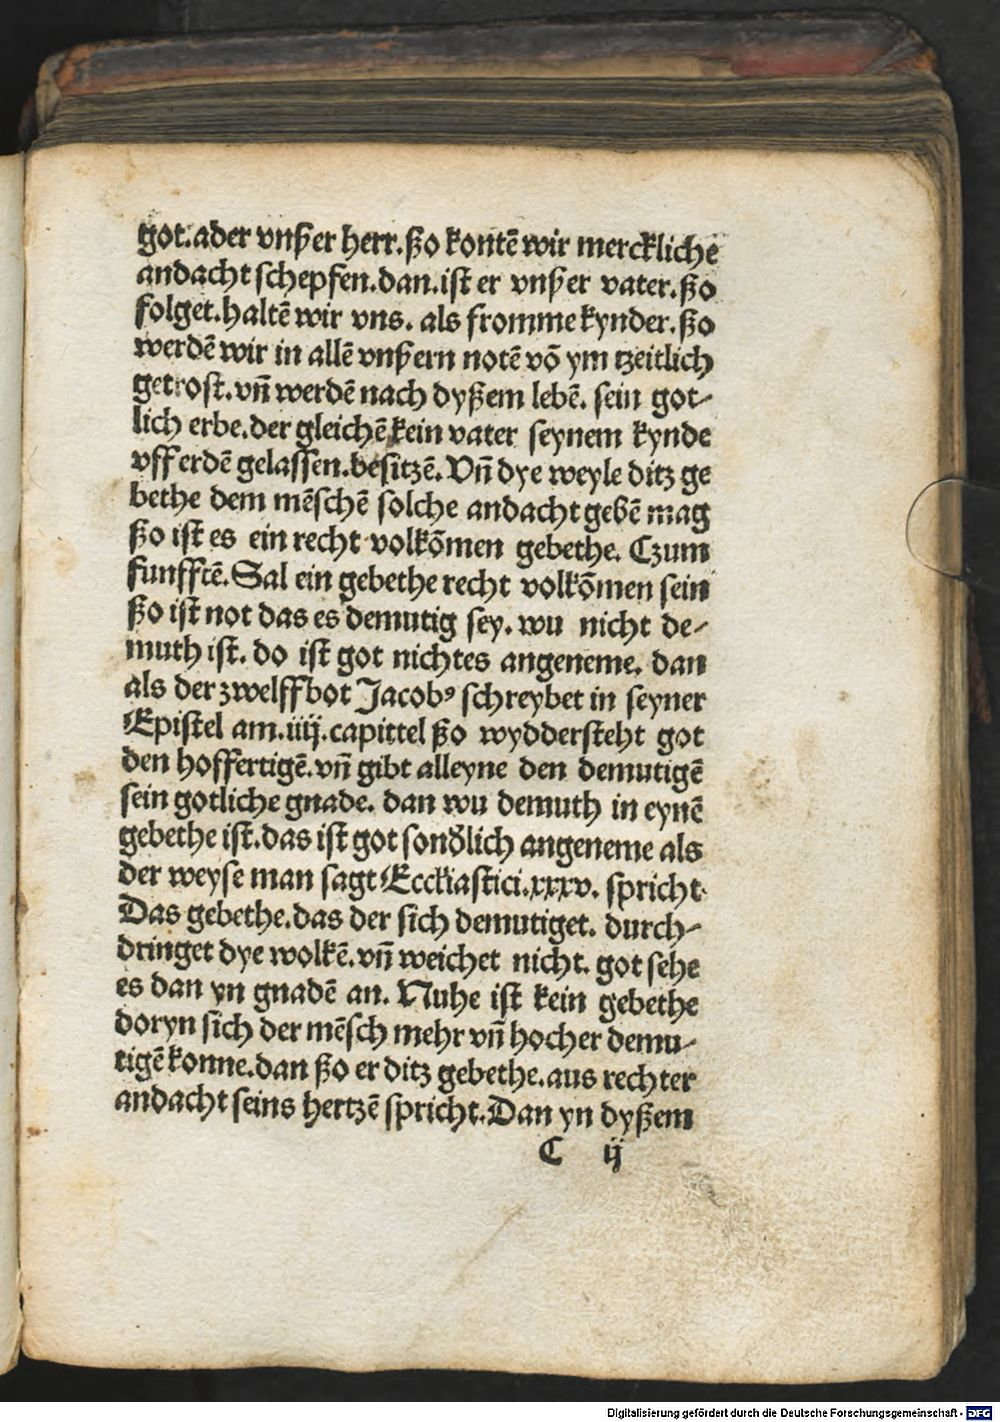 got.ader vnßer herr.ßo kontē wir merckliche
andacht schepfen.dan.ist er vnßer vater.ßo
folget.haltē wir vns. als fromme kynder.ßo
werdē wir in allē vnßern notē vō ym tzeitlich
getrost.vn̄ werdē nach dyßem lebē. sein got⸗
lich erbe.der gleichē kein vater seynem kynde
vff erdē gelassen.besitzē.Vn̄ dye weyle ditz ge
bethe dem mēschē solche andacht gebē mag
ßo ist es ein recht volkōmen gebethe. Czum
funfftē.Sal ein gebethe recht volkōmen sein
ßo ist not das es demutig sey. wu nicht de⸗
muth ist. do ist got nichtes angeneme. dan
als der zwelffbot Jacobꝰ schreybet in seyner
Epistel am.iiij.capittel ßo wyddersteht got
den hoffertigē.vn̄ gibt alleyne den demutigē
sein gotliche gnade. dan wu demuth in eynē
gebethe ist.das ist got sonđlich angeneme als
der weyse man sagt Ecclesiastici.xxxv. spricht
Das gebethe.das der sich demutiget. durch⸗
dringet dye wolkē.vn̄ weichet nicht. got sehe
es dan yn gnadē an. Nuhe ist kein gebethe
doryn sich der mēsch mehr vn̄ hocher demu⸗
tigē konne.dan ßo er ditz gebethe.aus rechter
andacht seins hertzē spricht.Dan yn dyßem
C ij
Digitalisierung gefördert durch die Deutsche Forschungsgemeinschaft - DFG